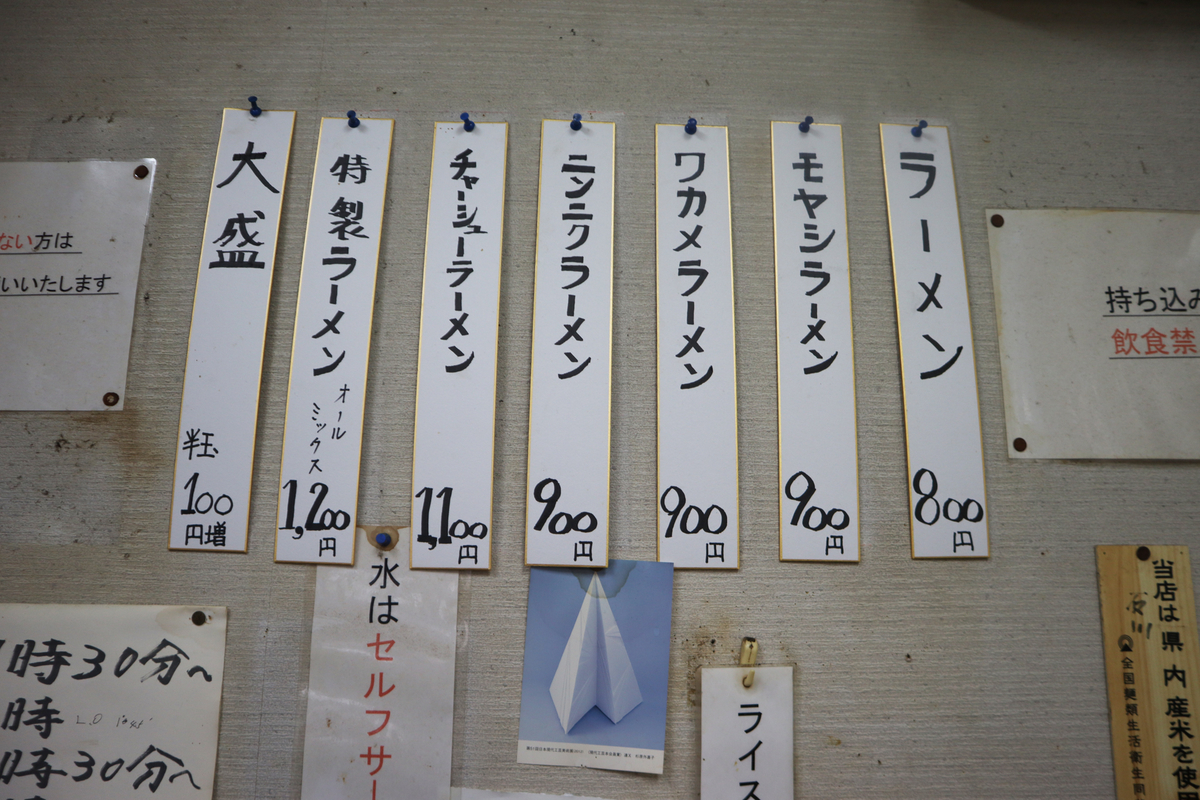 ラーメン
800円
モヤシラーメン
900円
ワカメラーメン
900円
ニンニクラーメン
900円
チャーシューラーメン
1,100円
特製ラーメン
オール
ミックス
1,200円
大盛
半玉
100
円増
持ち込み
飲食禁
ない方は
いいたします
水はセルフサー
ライス
当店は県内産米を使
全国麺類生活衛生同
時30分へ
時
時30分へ